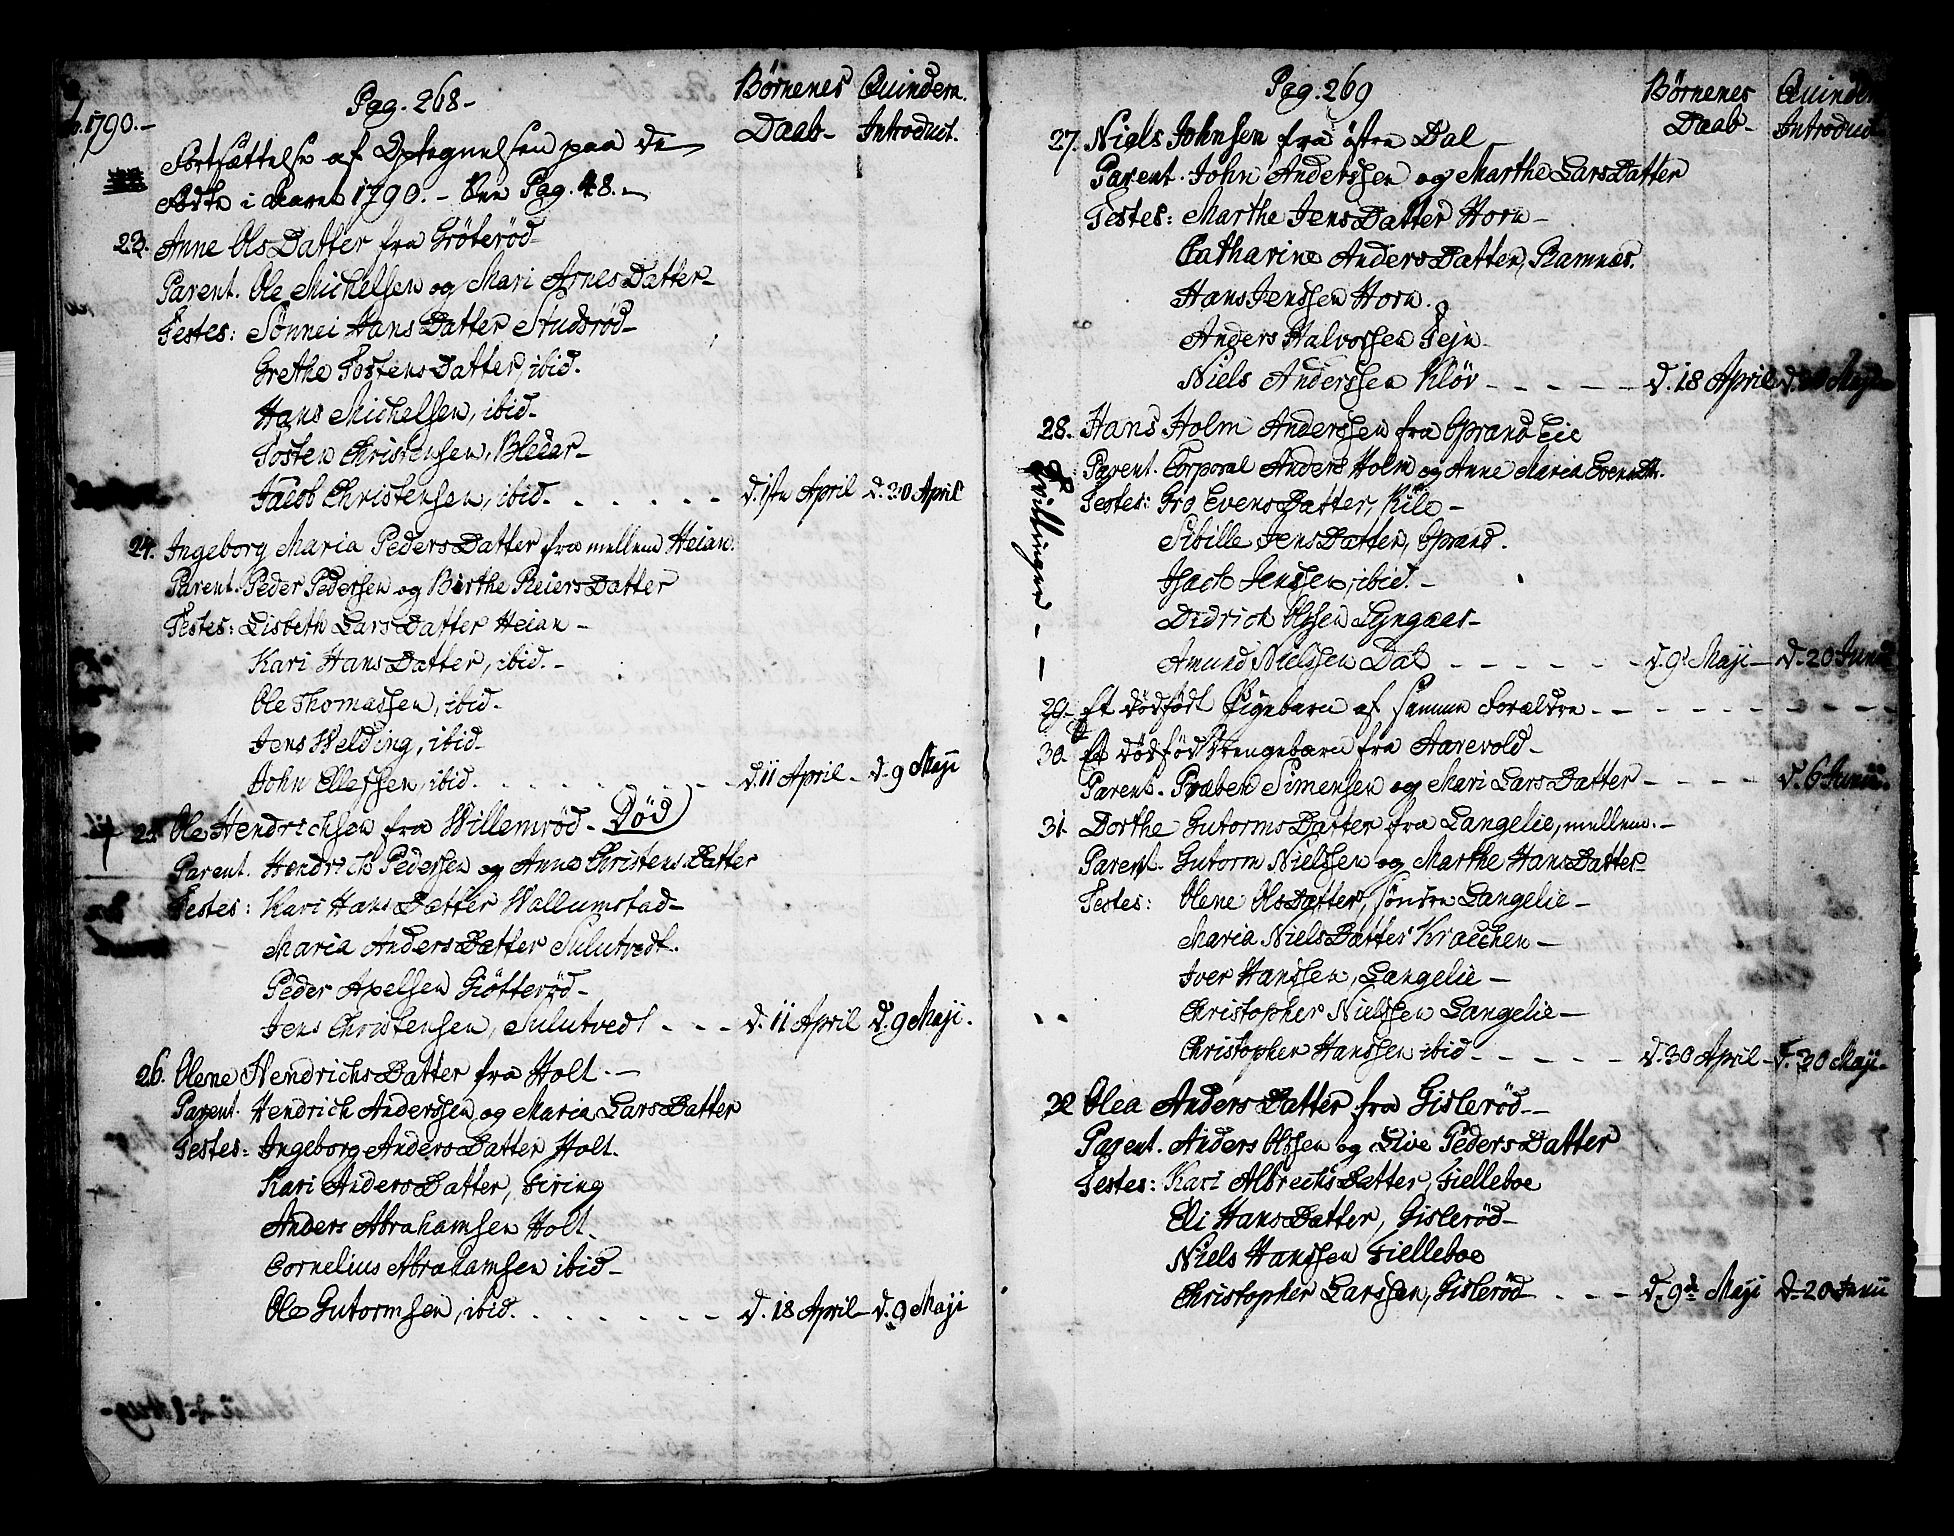 1790.-
Pag. 268-
Børnenes Daab-
Qvindern. Introduct.
Fortsættelse af Optegnelsen paa de
Födte i Aaret 1790. - See Pag. 48.-
23. Anne OlsDatter fra Gröteröd-
Parent. Ole Michelsen og Mari ArnesDatter-
Testes: Sönnei HansDatter Studsröd-
Grethe TostensDatter, ibid.
Hans Michelsen, ibid-
Tosten Christensen, Bleear-
Jacob Christensen, ibid. - - - - - d. 1ste April d. 30 April
24. Ingeborg Maria PedersDatter fra mellem Heian.
Parent. Peder Pedersen og Birthe ReiersDatter
Testes: Lisbeth LarsDatter Heian-
Kari HansDatter, ibid.-
Ole Thomassen, ibid-
Jens Welding, ibid-
John Ellefsen, ibid. - - - - - d. 11 April- d. 9 Maji
25. Ole Hendrichsen fra Willemröd- Död
Parent. Hendrich Pedersen og Anne ChristensDatter
Testes: Kari HansDatter Wallumstad-
Maria AndersDatter Sulutvedt.
Peder Apelsen Giötteröd-
Jens Christensen, Sulutvedt - - - d. 11 April d. 9 Maji.
26. Olene HendrichsDatter fra Holt.-
Parent. Hendrich Anderssen og Maria LarsDatter
Testes: Ingeborg AndersDatter Holt.
Kari AndersDatter, Firing
Anders Abrahamsen Holt.
Cornelius Abrahamsen ibid-
Ole Gutormsen, ibid. - - - - - d. 18 April- d. 9 Maji
Pag. 269
Børnenes Daab-
Introduct
27. Niels Johnsen fra östre Dal
Parent. John Anderssen og Marthe LarsDatter
Testes: Marthe JensDatter Horn-
Catharine AndersDatter, Ramnes.
Hans Jenssen Horn.
Anders Halvorsen Tejn
Niels Anderssen Klöv - - - - - d. 18 April
28. Hans Holm Anderssen fra Eie
Parent. Corporal Anders Holm og Anne Maria
Tvillinger - -
Testes: Gro EvensDatter, Kile-
Sibille JensDatter,
Isach Jenssen, ibid.-
Didrich Olssen Lyngaas-
Amund Nielssen Dal - - - - - d. 9d Maji- d. 20 Junii
29. Et dödfödt Pigebarn af samme Forældre - - - -
30. Et dödföd Drengebarn fra Aarevold-
Parent. Præben Simensen og Mari LarsDatter - - - - d. 6 Junii.
31. Dorthe GutormsDatter fra Langelie, mellem.-
Parent. Gutorm Nielssen og Marthe HansDatter-
Testes: Olene OlsDatter, söndre Langelie-
Maria NielsDatter Kracchen-
Iver Hanssen, Langelie-
Christopher Nielssen Langelie-
Christopher Hanssen ibid - - - - - d. 30 April- d. 30 Maji-
32 Olea AndersDatter fra Gisleröd.-
Parent. Anders Olssen og Live PedersDatter
Testes: Kari AlbrechtsDatter, Fielleboe
Eli HansDatter, Gisleröd-
Niels Hanssen Fielleboe
Christopher Larssen, Gisleröd - - - d. 9d Maji d. 20 Junii